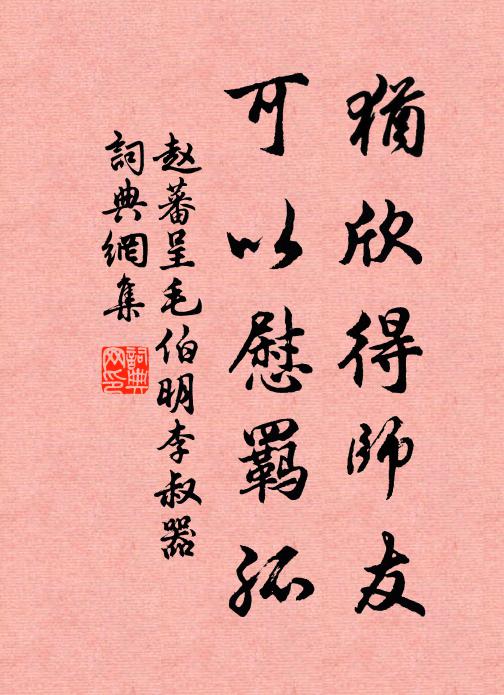 猶欣得師友
可以慰羈孤
赵蕃呈毛伯明李叔器
詞典網集
詞典網印